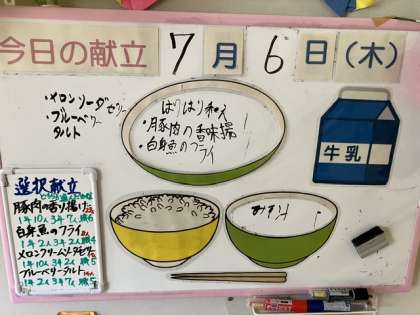 今日の献立 7月6日(木)
・メロンソーダゼリー
・ブルーベリー
タルト
はりはり和え
・豚肉の香味揚
・白身魚のフライ
牛乳
みそ汁
選択献立
豚肉の香り揚げ
1年10人3年7人職6
白身魚のフライ
1年2人3年2人職4
メロンクリームソーダゼリー
1年10人3年2人職5
ブルーベリータルト
1年2人3年7人職5